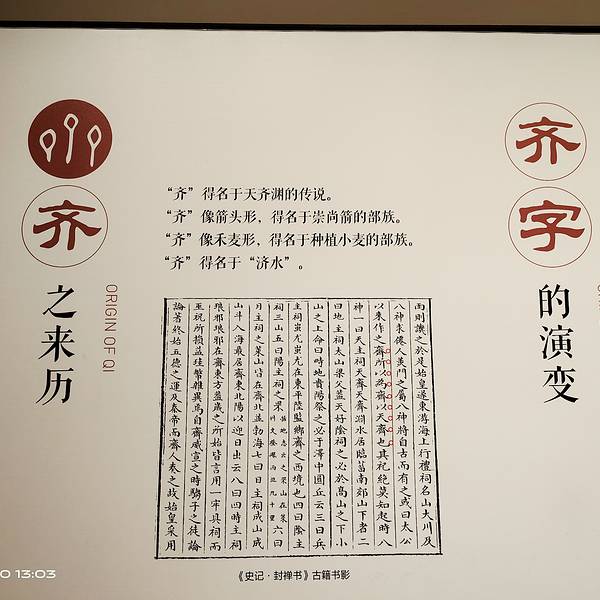 齐
之来历
ORIGIN OF QI
“齐”得名于天齐渊的传说。
“齐”像箭头形，得名于崇尚箭的部族。
“齐”像禾麦形，得名于种植小麦的部族。
“齐”得名于“济水”。
而則譏之於是始皇遂東游海上行禮祠名山大川及
八神求僊人羡門之屬八神將自古而有之或曰太公
以來作之齊所以為齊以天齊也其祀絶莫知起時八
神一曰天主祠天齊天齊淵水居臨菑南郊山下者二
曰地主祠太山梁父蓋天好陰祠之必於高山之下小
山之上命曰畤地貴陽祭之必于澤中圜丘云三曰兵
主祠蚩尤蚩尤在東平陸監鄉齊之西境也四曰陰主
祠三山五曰陽主祠之罘
六曰
月主祠之萊山皆在齊北並勃海七曰日主祠成山成
山斗入海最居齊東北隅以迎日出云八曰四時主祠
琅邪琅邪在齊東方蓋歲之所始皆言用一牢具祠而
巫祝所損益珪幣雜異焉自齊威宣之時騶子之徒論
論著終始五德之運及秦帝而齊人奏之故始皇采用
《史记·封禅书》古籍书影
齐字
的演变
0 13:03